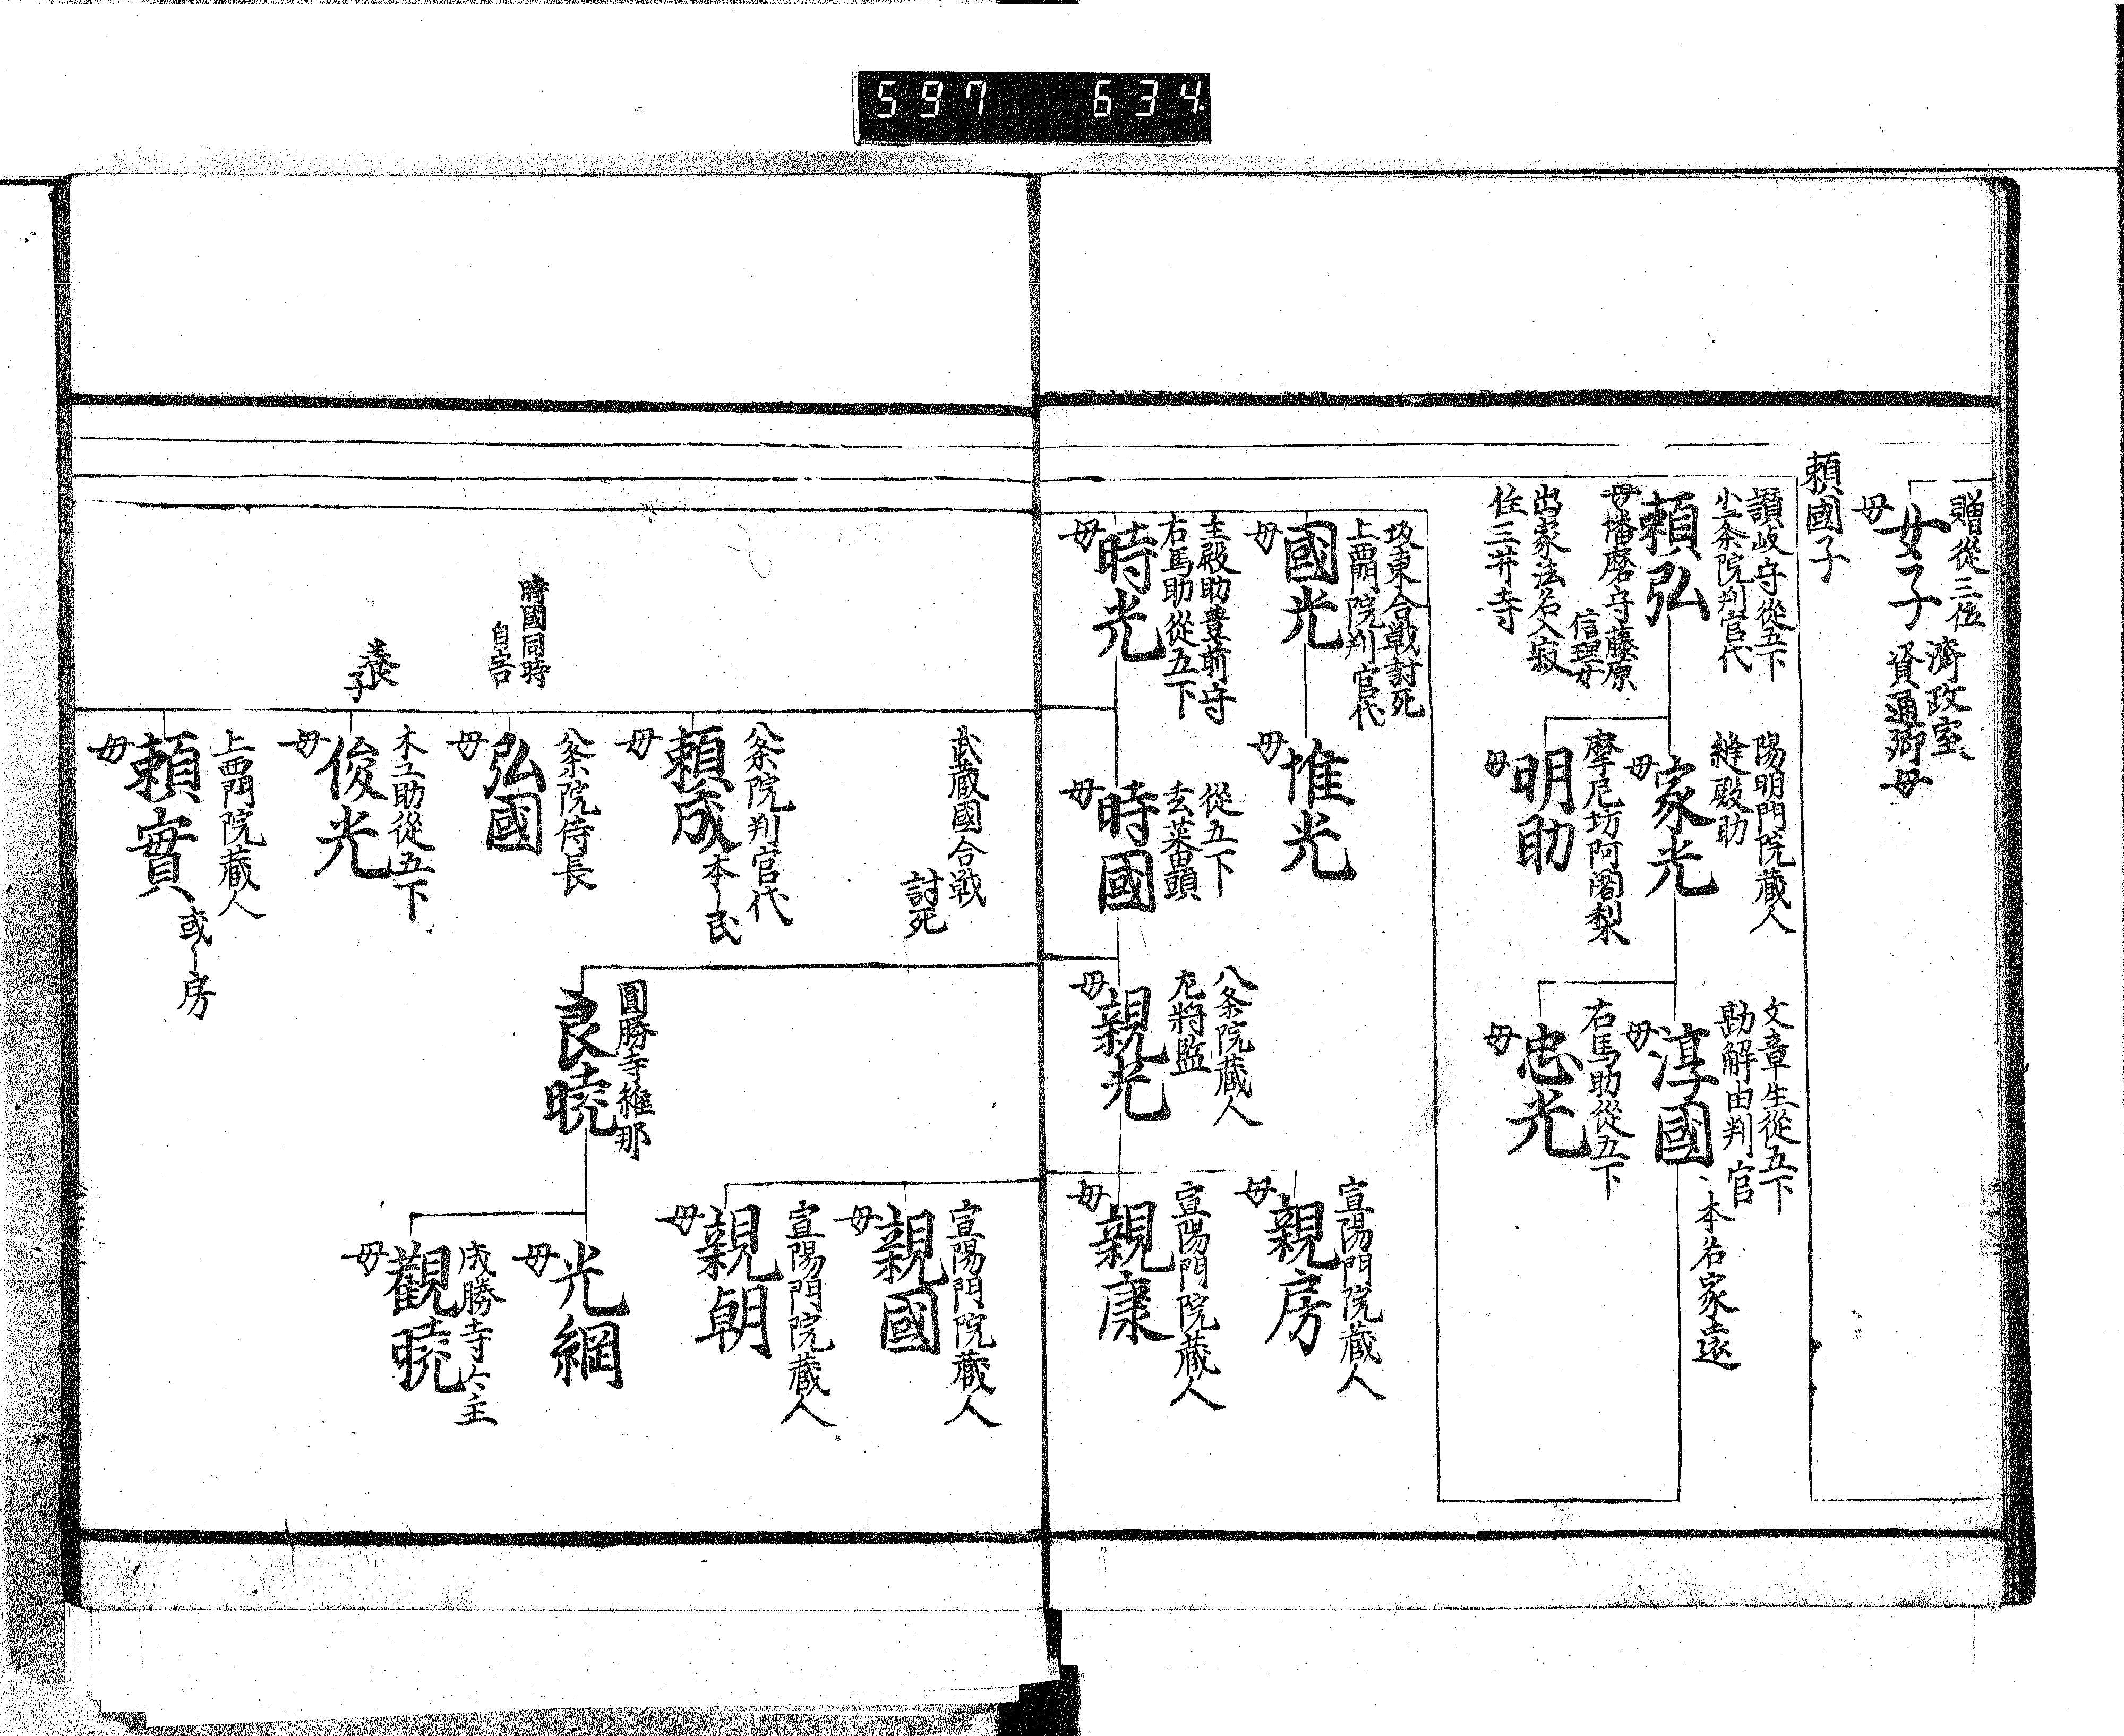 597 634
贈從三位
女子
母
濟政室
資通卿母
頼國子
讃岐守從五下
小一条院判官代
頼弘
母播磨守藤原
信理女
出家法名入寂
住三井寺
陽明門院蔵人
縫殿助
家光
母
摩尼坊阿闍梨
明助
母
文章生從五下
勘解由判官
淳國
母
本名家遠
右馬助從五下
忠光
母
坂東合戦討死
上西門院判官代
國光
母
惟光
母
主殿助豊前守
右馬助從五下
時光
母
從五下
玄蕃頭
時國
母
八条院蔵人
左将監
親光
母
宣陽門院蔵人
親房
母
宣陽門院蔵人
親康
母
武蔵國合戦
討死
宣陽門院蔵人
親國
母
宣陽門院蔵人
親朝
母
八条院判官代
頼成
母
本〻民
圓勝寺維那
良暁
光綱
母
成勝寺公主
觀暁
母
時國同時
自害
八条院侍長
弘國
母
養子
木工助從五下
俊光
母
上西門院蔵人
頼實
母
或〻房